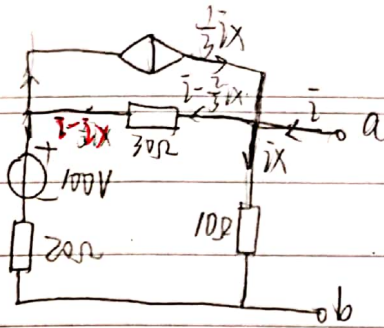 1/3 ix
i-2/3 ix
i
a
i-
ix
30Ω
ix
+
100V
-
10Ω
20Ω
b